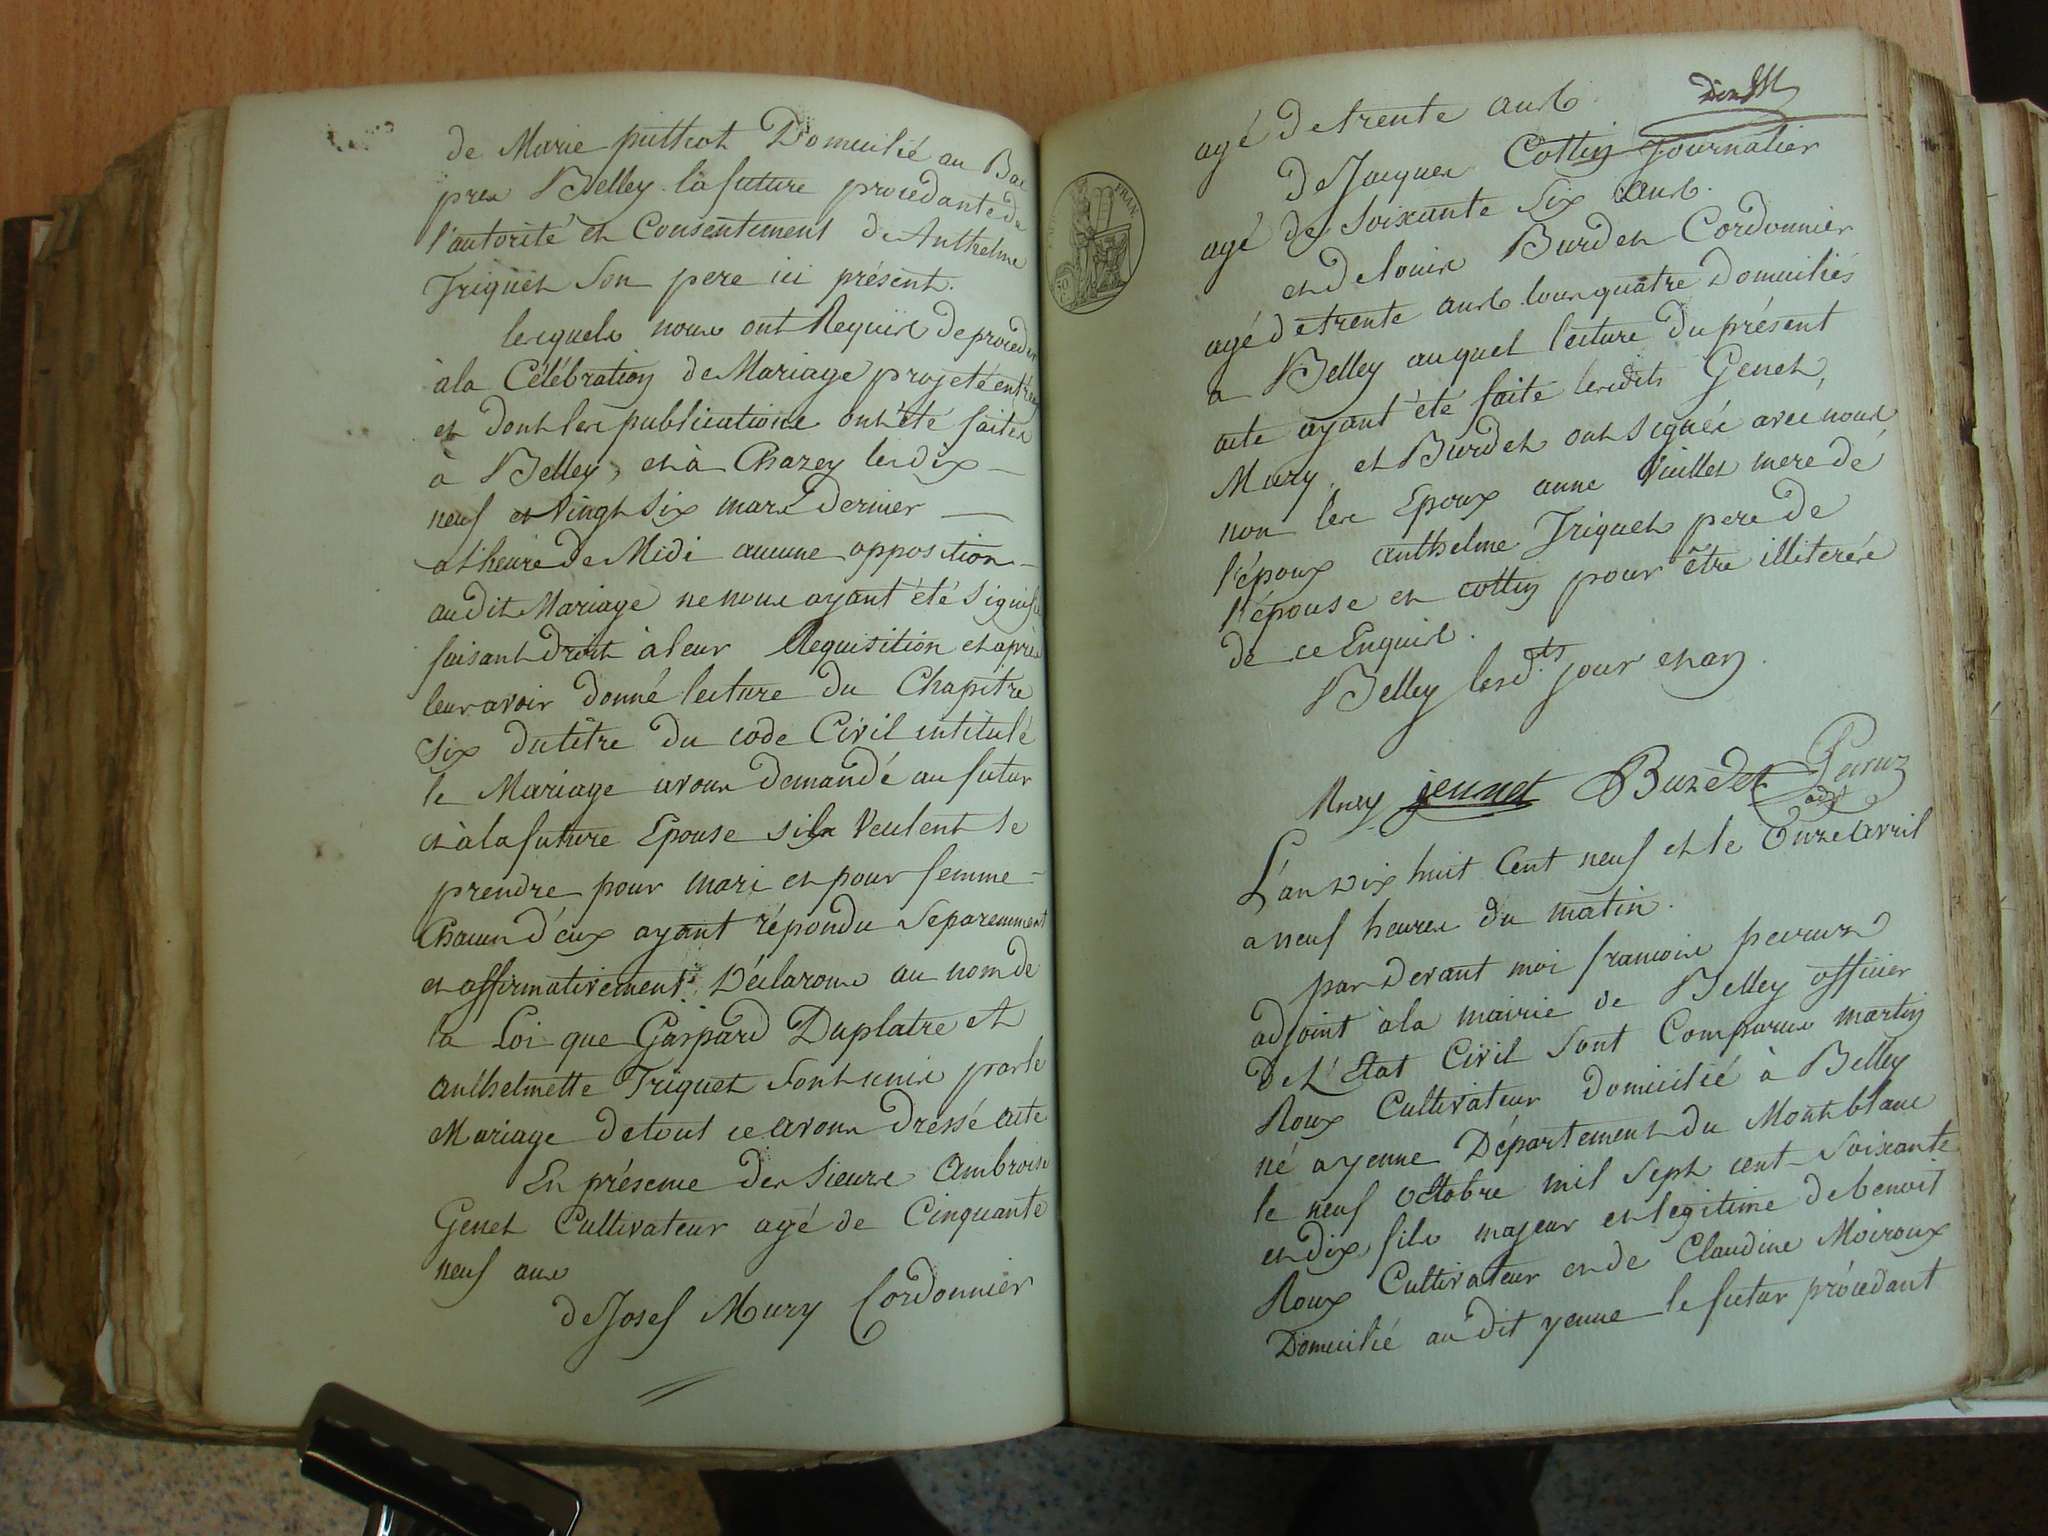 de Marie puthod Domicilié au Bac
pres Belley la future procedante de
l'autorité et Consentement de Anthelme
Triquet son pere ici présent.
lesquels nous ont Requis de proceder
à la Célébration de Mariage projeté entr'eux
et dont les publications ont été faites
à Belley, et à Chazey les dix
neuf et Vingt Six mars Dernier
a l'heure de Midi aucune opposition
audit Mariage ne nous ayant été Signifiée
faisant droit à leur Requisition et après
leur avoir donné lecture du Chapitre
Six du titre du code Civil intitulé
le Mariage avons demandé au futur
et à la future Epouse sils Veulent se
prendre pour mari et pour femme
Chacun d'eux ayant répondu Separemment
et affirmativement, Déclarons au nom de
la Loi que Gaspard Duplatre et
anthelmette Triquet Sont unis par le
Mariage de tout ce avons Dressé acte
En présence des Sieurs Ambroise
Genet Cultivateur agé de Cinquante
neuf ans
de Josef Mury Cordonnier
agé de trente ans
de Jacques Cottin Journalier
agé de Soixante Six ans.
et de louis Burdet Cordonnier
agé de trente ans tous quatre Domiciliés
a Belley auquel lecture du présent
acte ayant été faite lesdits Genet,
Mury, et Burdet ont Signés avec nous
non les Epoux anne Vuillet mere de
l'époux anthelme Triquet pere de
l'épouse et cottin pour être illiterés
de ce Enquis.
Belley lesd.ts jour et an
Mury jennet Burdet Peruz
adjt
L'an Dix huit Cent neuf et le Onze avril
a neuf heures du matin.
par Devant moi francois peruz
adjoint à la mairie de Belley officier
de L'Etat Civil Sont Comparus martin
Roux Cultivateur Domicilié à Belley
né a yenne Département du Montblanc
le neuf octobre mil Sept cent Soixante
et dix, fils majeur et legitime de benoit
Roux Cultivateur et de Claudine Moiroux
Domicilié au dit yenne le futur procedant